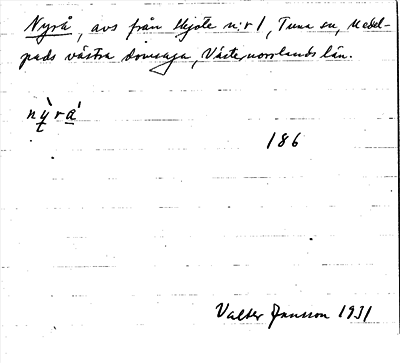 Nyrå, avs från Skjöle n:r 1, Tuna sn, Medel-
pads västra domsaga, Västernorrlands län.
nỳrá
186
Valter Jansson 1931